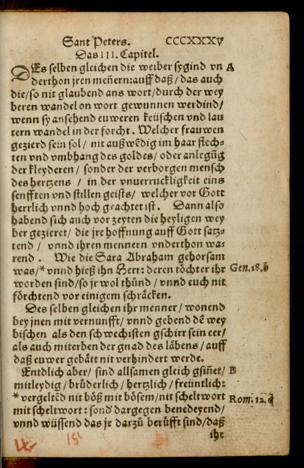 Sant Peters. CCCXXXV
Das III. Capitel.
DEs selben gleichen die weiber sygind vn A
derthon jren meñern: auff daß/ das auch
die/ so nit glaubend ans wort/ durch der wey
beren wandel on wort gewunnen werdind/
wenn sy ansehend euweren keüschen vnd lau
tern wandel in der forcht. Welcher frauwen
gezierd sein sol/ nit außwẽdig im haar flech-
ten vnd vmbhang des goldes/ oder anlegũg
der kleyderen/ sonder der verborgen mensch
des hertzens/ in der vnuerruckligkeit eins
senfften vnd stillen geists/ welcher vor Gott
herrlich vnnd hoch geachtet ist. Dann also
habend sich auch vor zeyten die heyligen wey
ber gezieret/ die jre hoffnung auff Gott satz-
tend/ vnnd ihren mennern vnderthon wa-
rend. Wie die Sara Abraham gehorsam
was/* vnnd hieß ihn Herr: deren töchter ihr Gen.18.b
worden sind/ so jr wol thünd/ vnnd euch nit
förchtend vor einigem schräcken.
Des selben gleichen ihr menner/ wonend
bey jnen mit vernunfft/ vnnd gebend dẽ wey
bischen als den schwechisten gschirr sein eer/
als auch miterben der gnad des läbens/ auff
daß euwer gebätt nit verhindert werde.
Entdlich aber/ sind allsamen gleich gsiñet/ B
mitleydig/ brüderlich/ hertzlich/ freüntlich:
* vergeltẽd nit böß mit bösem/ nit scheltwort Rom.12.c
mit scheltwort: sond' dargegen benedeyend/
vnnd wüssend das jr darzů berüfft sind/ daß
ihr